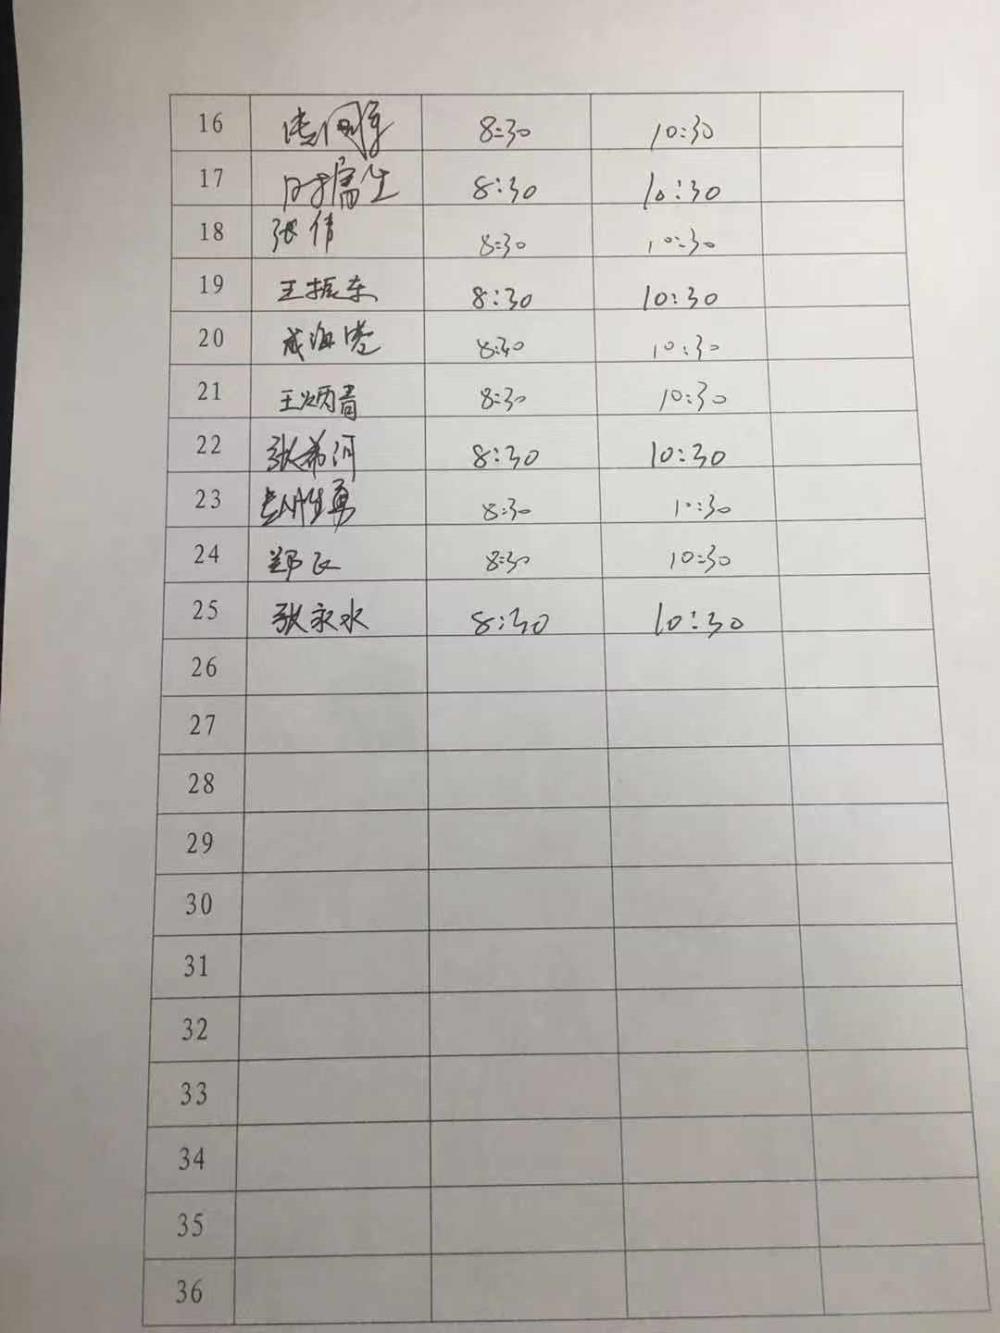 16 8:30 10:30
17 8:30 10:30
18 张倩 8:30 10:30
19 王振东 8:30 10:30
20 8:30 10:30
21 王炳青 8:30 10:30
22 张希河 8:30 10:30
23 8:30 10:30
24 郑飞 8:30 10:30
25 张永水 8:30 10:30
26
27
28
29
30
31
32
33
34
35
36